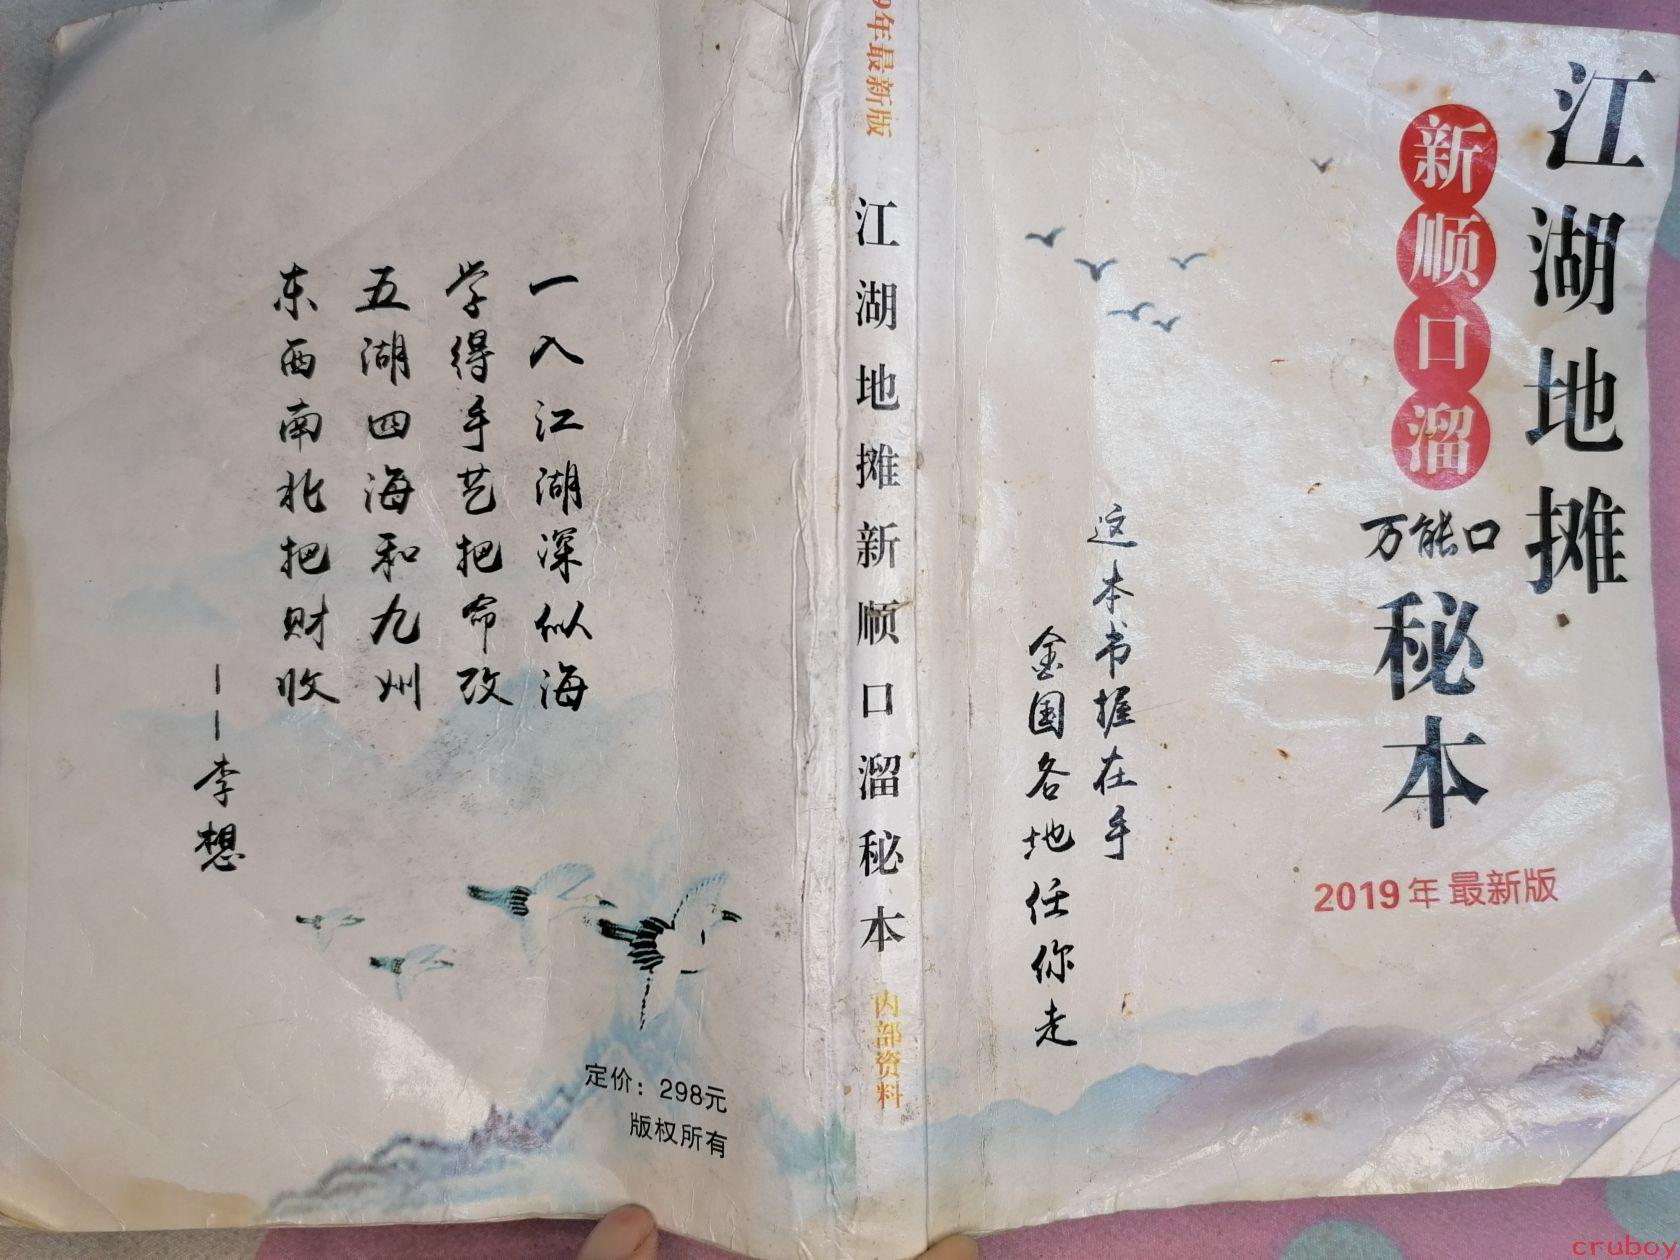 江湖地摊
新顺口溜
万能口
秘本
2019年最新版
这本书握在手
全国各地任你走
9年最新版
江湖地摊新顺口溜秘本
内部资料
一入江湖深似海
学得手艺把命改
五湖四海和九州
东西南北把财收
——李想
定价：298元
版权所有
cruboy